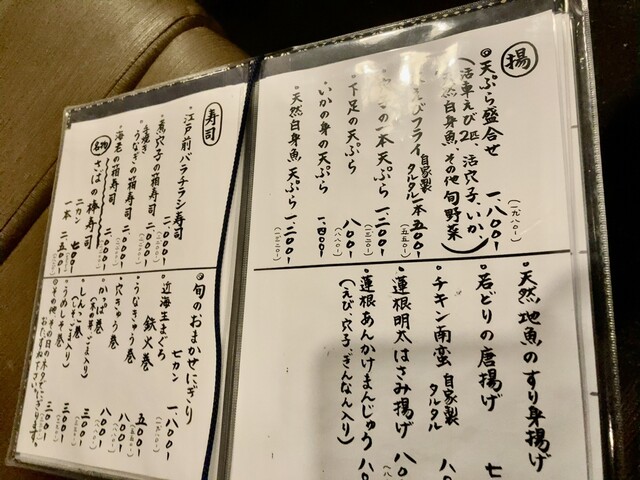 揚
◎天ぷら盛合せ 一、八〇〇-
(一九八〇-)
(活車えび2匹 活穴子、いか、
天然白身魚、その他旬野菜)
えびフライ 自家製タルタル 一本 五〇〇-
(五五〇-)
の一本天ぷら 一、二〇〇-
(一三二〇-)
下足の天ぷら 八〇〇-
(八八〇-)
・いかの身の天ぷら 一、四〇〇-
・天然白身魚天ぷら 一、二〇〇-
・天然地魚のすり身揚げ
・若どりの唐揚げ 七
・チキン南蛮 自家製タルタル 八
・蓮根明太はさみ揚げ 八〇
・蓮根あんかけまんじゅう 八〇
(えび、穴子、ぎんなん入り)
寿司
・江戸前バラチラシ寿司 二、〇〇〇-
・煮穴子の箱寿司 二、〇〇〇-
・手焼きうなぎの箱寿司 二、〇〇〇-
・海老の箱寿司 二、〇〇〇-
名物 さばの棒寿司 二カン 七〇〇-
一本 二、五〇〇-
◎旬のおまかせにぎり 七カン 一、八〇〇-
(一九八〇-)
・近海生まぐろ鉄火巻 五〇〇-
(五五〇-)
・うなきゅう巻 八〇〇-
(八八〇-)
・穴きゅう巻 八〇〇-
・かっぱ巻 三〇〇-
・しんこ巻 三〇〇-
・うめしそ巻 三〇〇-